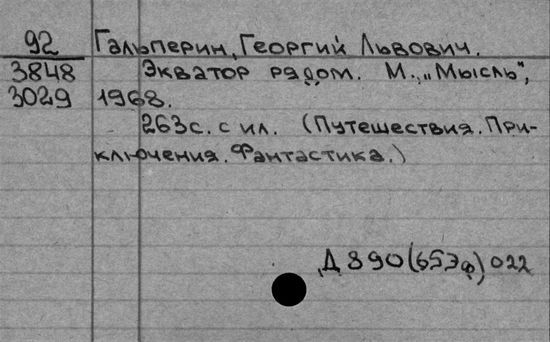 92 Гальперин, Георгий Львович.
3848 Экватор рядом. М., „Мысль",
3029 1968.
263с. с ил. (Путешествия. При-
ключения. Фантастика.)
Д 890(6Эф) 022